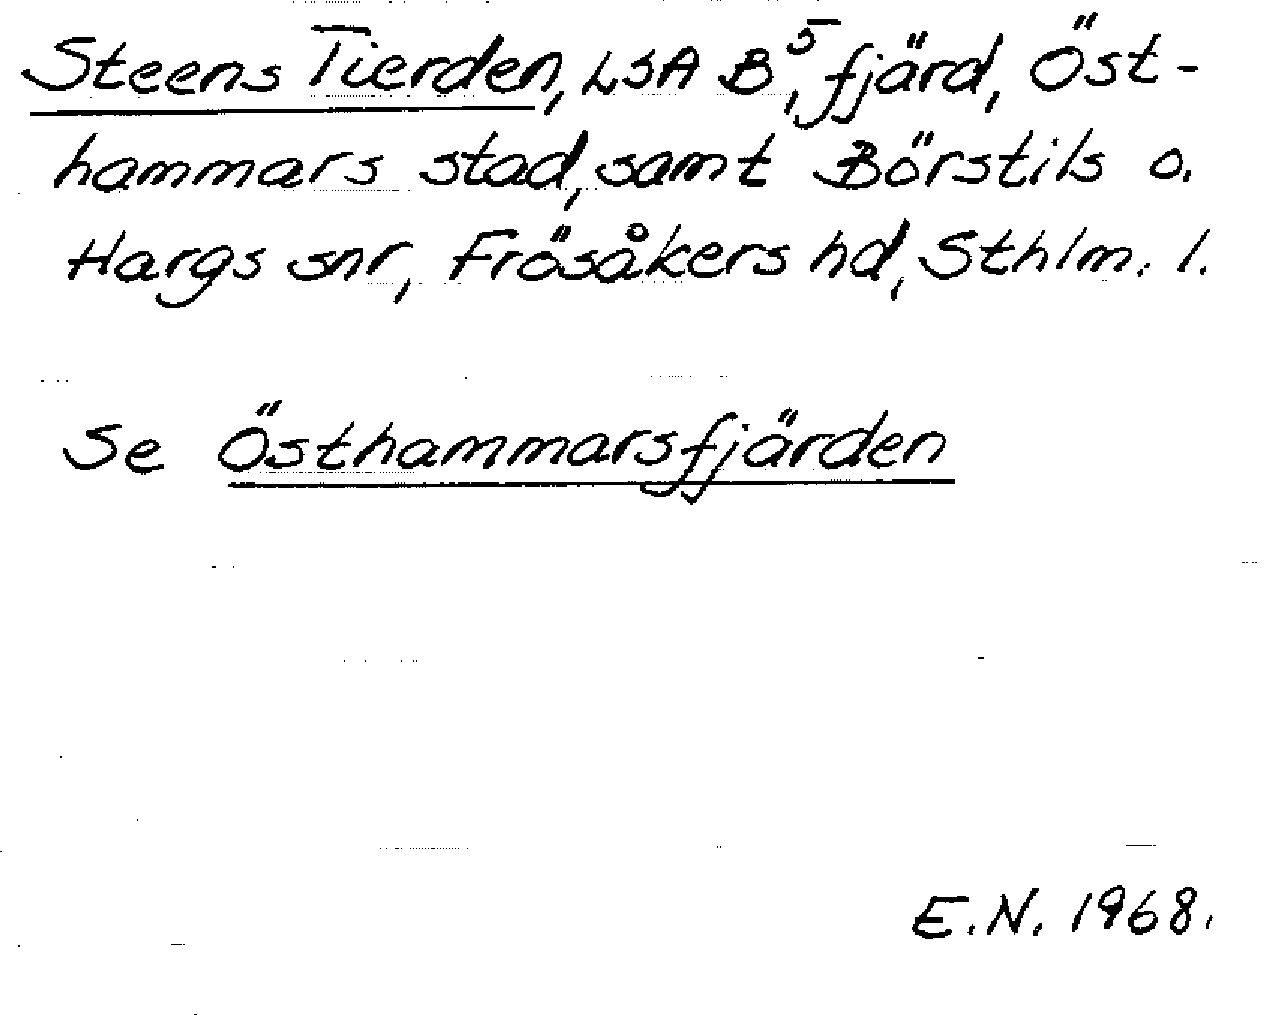 Steens Tierden, LSA B⁵, fjärd, Öst-
hammars stad, samt Börstils o.
Hargs snr, Frösåkers hd, Sthlm. l.
Se Östhammarsfjärden
E.N. 1968.